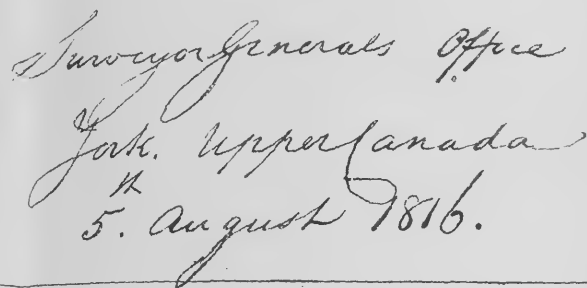 Surveyor Generals Office
York. Upper Canada
5.th August 1816.